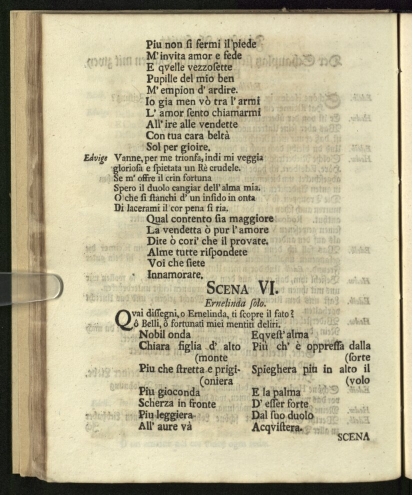 Piu non ſi fermi il'piede
M'invita amor e fede
E qvelle vezzoſette
Pupille del mio ben
M'empion d'ardire.
Io gia men vò tra l'armi
L'amor ſento chiamarmi
All'ire alle vendette
Con tua cara beltà
Sol per gioire.
Edvige Vanne, per me trionfa, indi mi veggia
glorioſa e ſpietata un Rè crudele.
Se m'offre il crin fortuna
Spero il duolo cangiar dell'alma mia.
O'che ſi ſtanchi d'un infido in onta
Di lacerami il cor pena ſi ria.
Qual contento ſia maggiore
La vendetta ò pur l'amore
Dite ò cori' che il provate,
Alme tutte riſpondete
Voi che ſiete
Innamorate.
SCENA VI.
Ernelinda ſolo.
Qvai diſſegni, o Ernelinda, ti ſcopre il fato?
ô Belli, ô fortunati miei mentiti deliri.
Nobil onda
Chiara figlia d'alto
(monte
Piu che ſtretta e prigi-
(oniera
Piu gioconda
Scherza in fronte
Piu leggiera
All'aure và
Eqveſt'alma
Più ch'è oppreſſa dalla
(ſorte
Spieghera piu in alto il
(volo
E la palma
D'eſſer forte
Dal ſuo duolo
Acqviſtera.
SCENA